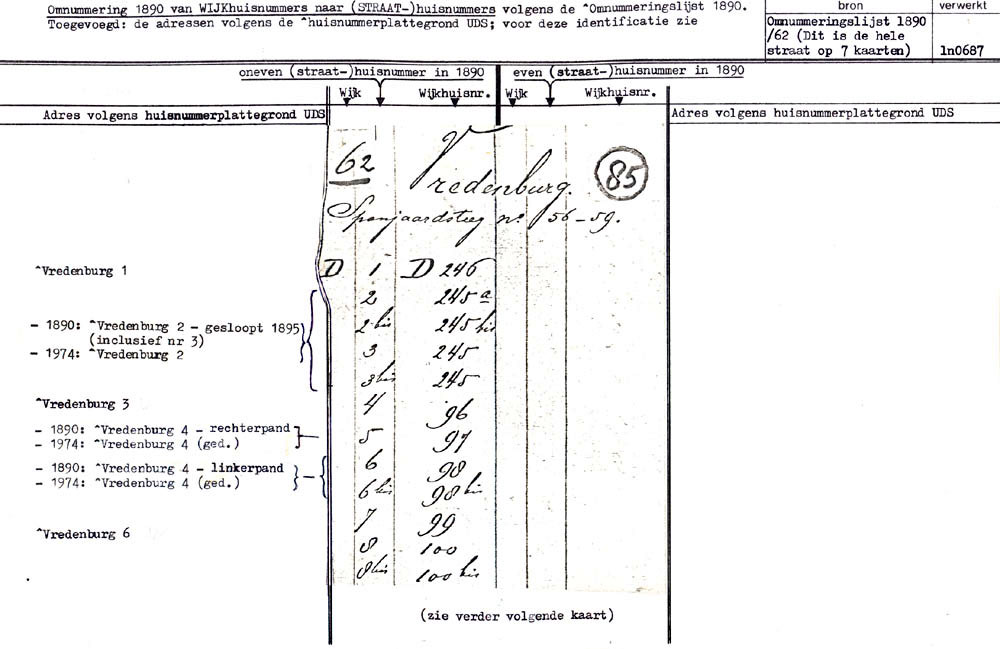 Omnummering 1890 van WIJKhuisnummers naar (STRAAT-)huisnummers volgens de ^Omnummeringslijst 1890.
Toegevoegd: de adressen volgens de ^huisnummerplattegrond UDS; voor deze identificatie zie
bron
verwerkt
Omnummeringslijst 1890
/62 (Dit is de hele
straat op 7 kaarten)
1n0687
oneven (straat-)huisnummer in 1890
even (straat-)huisnummer in 1890
Wijk Wijkhuisnr. Wijk Wijkhuisnr.
Adres volgens huisnummerplattegrond UDS
Adres volgens huisnummerplattegrond UDS
62 Vredenburg. 85
Spanjaardsteeg no. 56-59.
^Vredenburg 1 D 1 D 246
2 245 a
- 1890: ^Vredenburg 2 - gesloopt 1895 2 bis 245 bis
(inclusief nr 3)
- 1974: ^Vredenburg 2 3 245
3 bis 245
^Vredenburg 3 4 96
- 1890: ^Vredenburg 4 - rechterpand
- 1974: ^Vredenburg 4 (ged.) 5 97
- 1890: ^Vredenburg 4 - linkerpand 6 98
- 1974: ^Vredenburg 4 (ged.) 6 bis 98 bis
7 99
^Vredenburg 6
8 100
8 bis 100 bis
(zie verder volgende kaart)